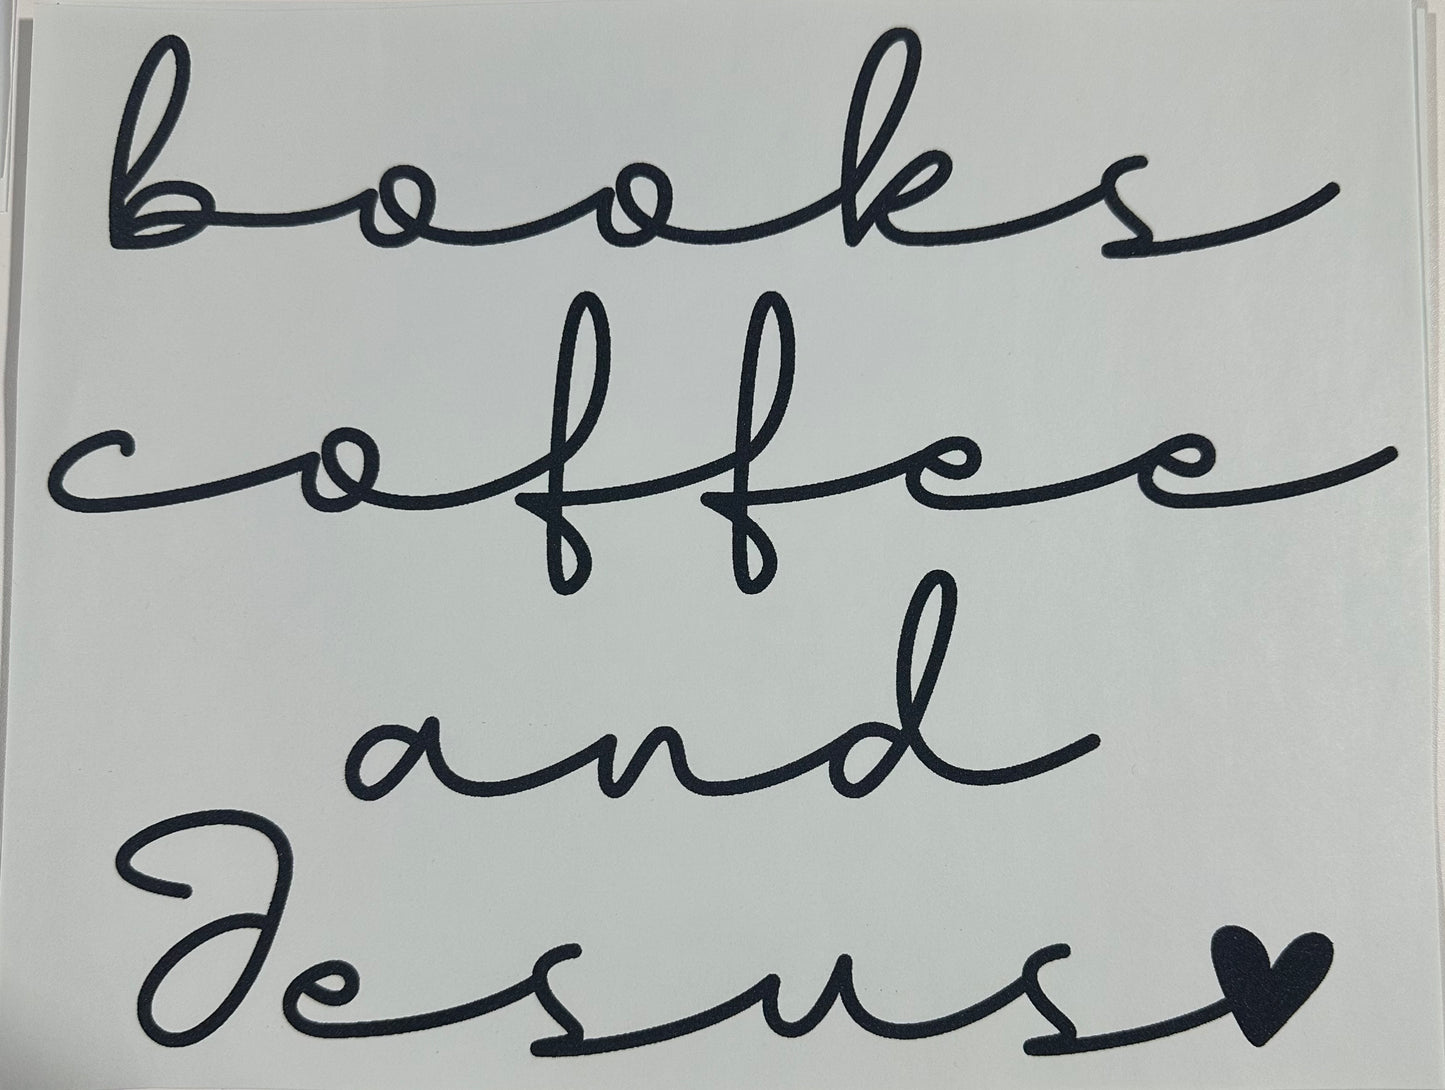 books
coffee
and
Jesus